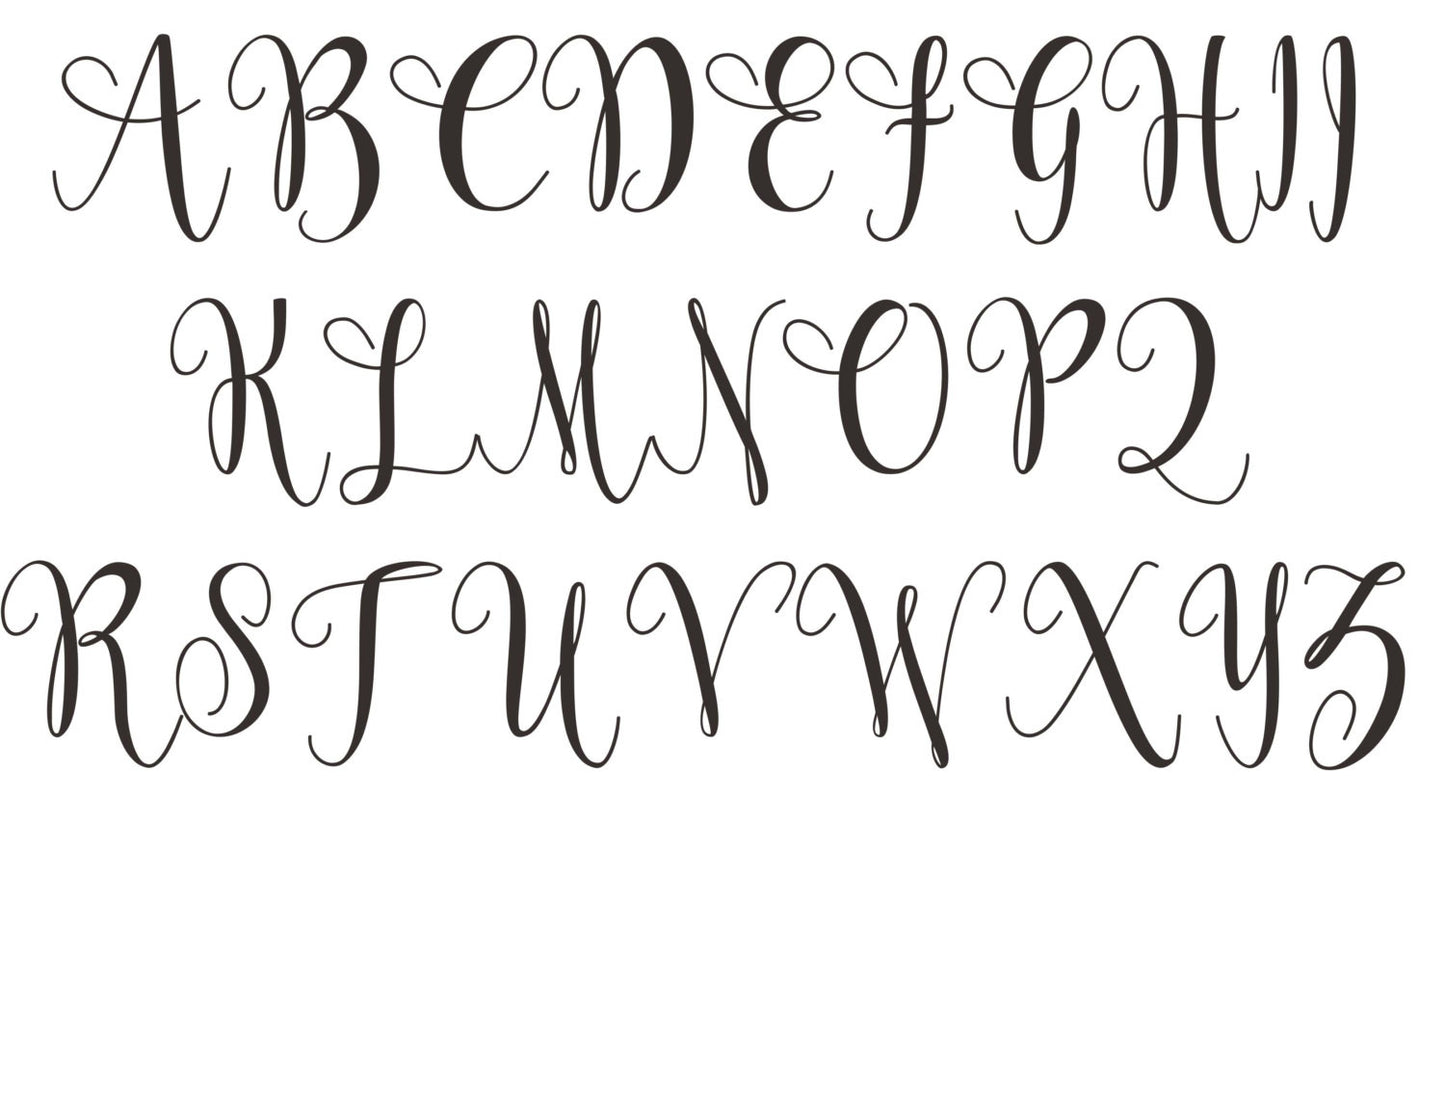 ABCDEFGHIJ
KLMNOPQ
RSTUVWXYZ